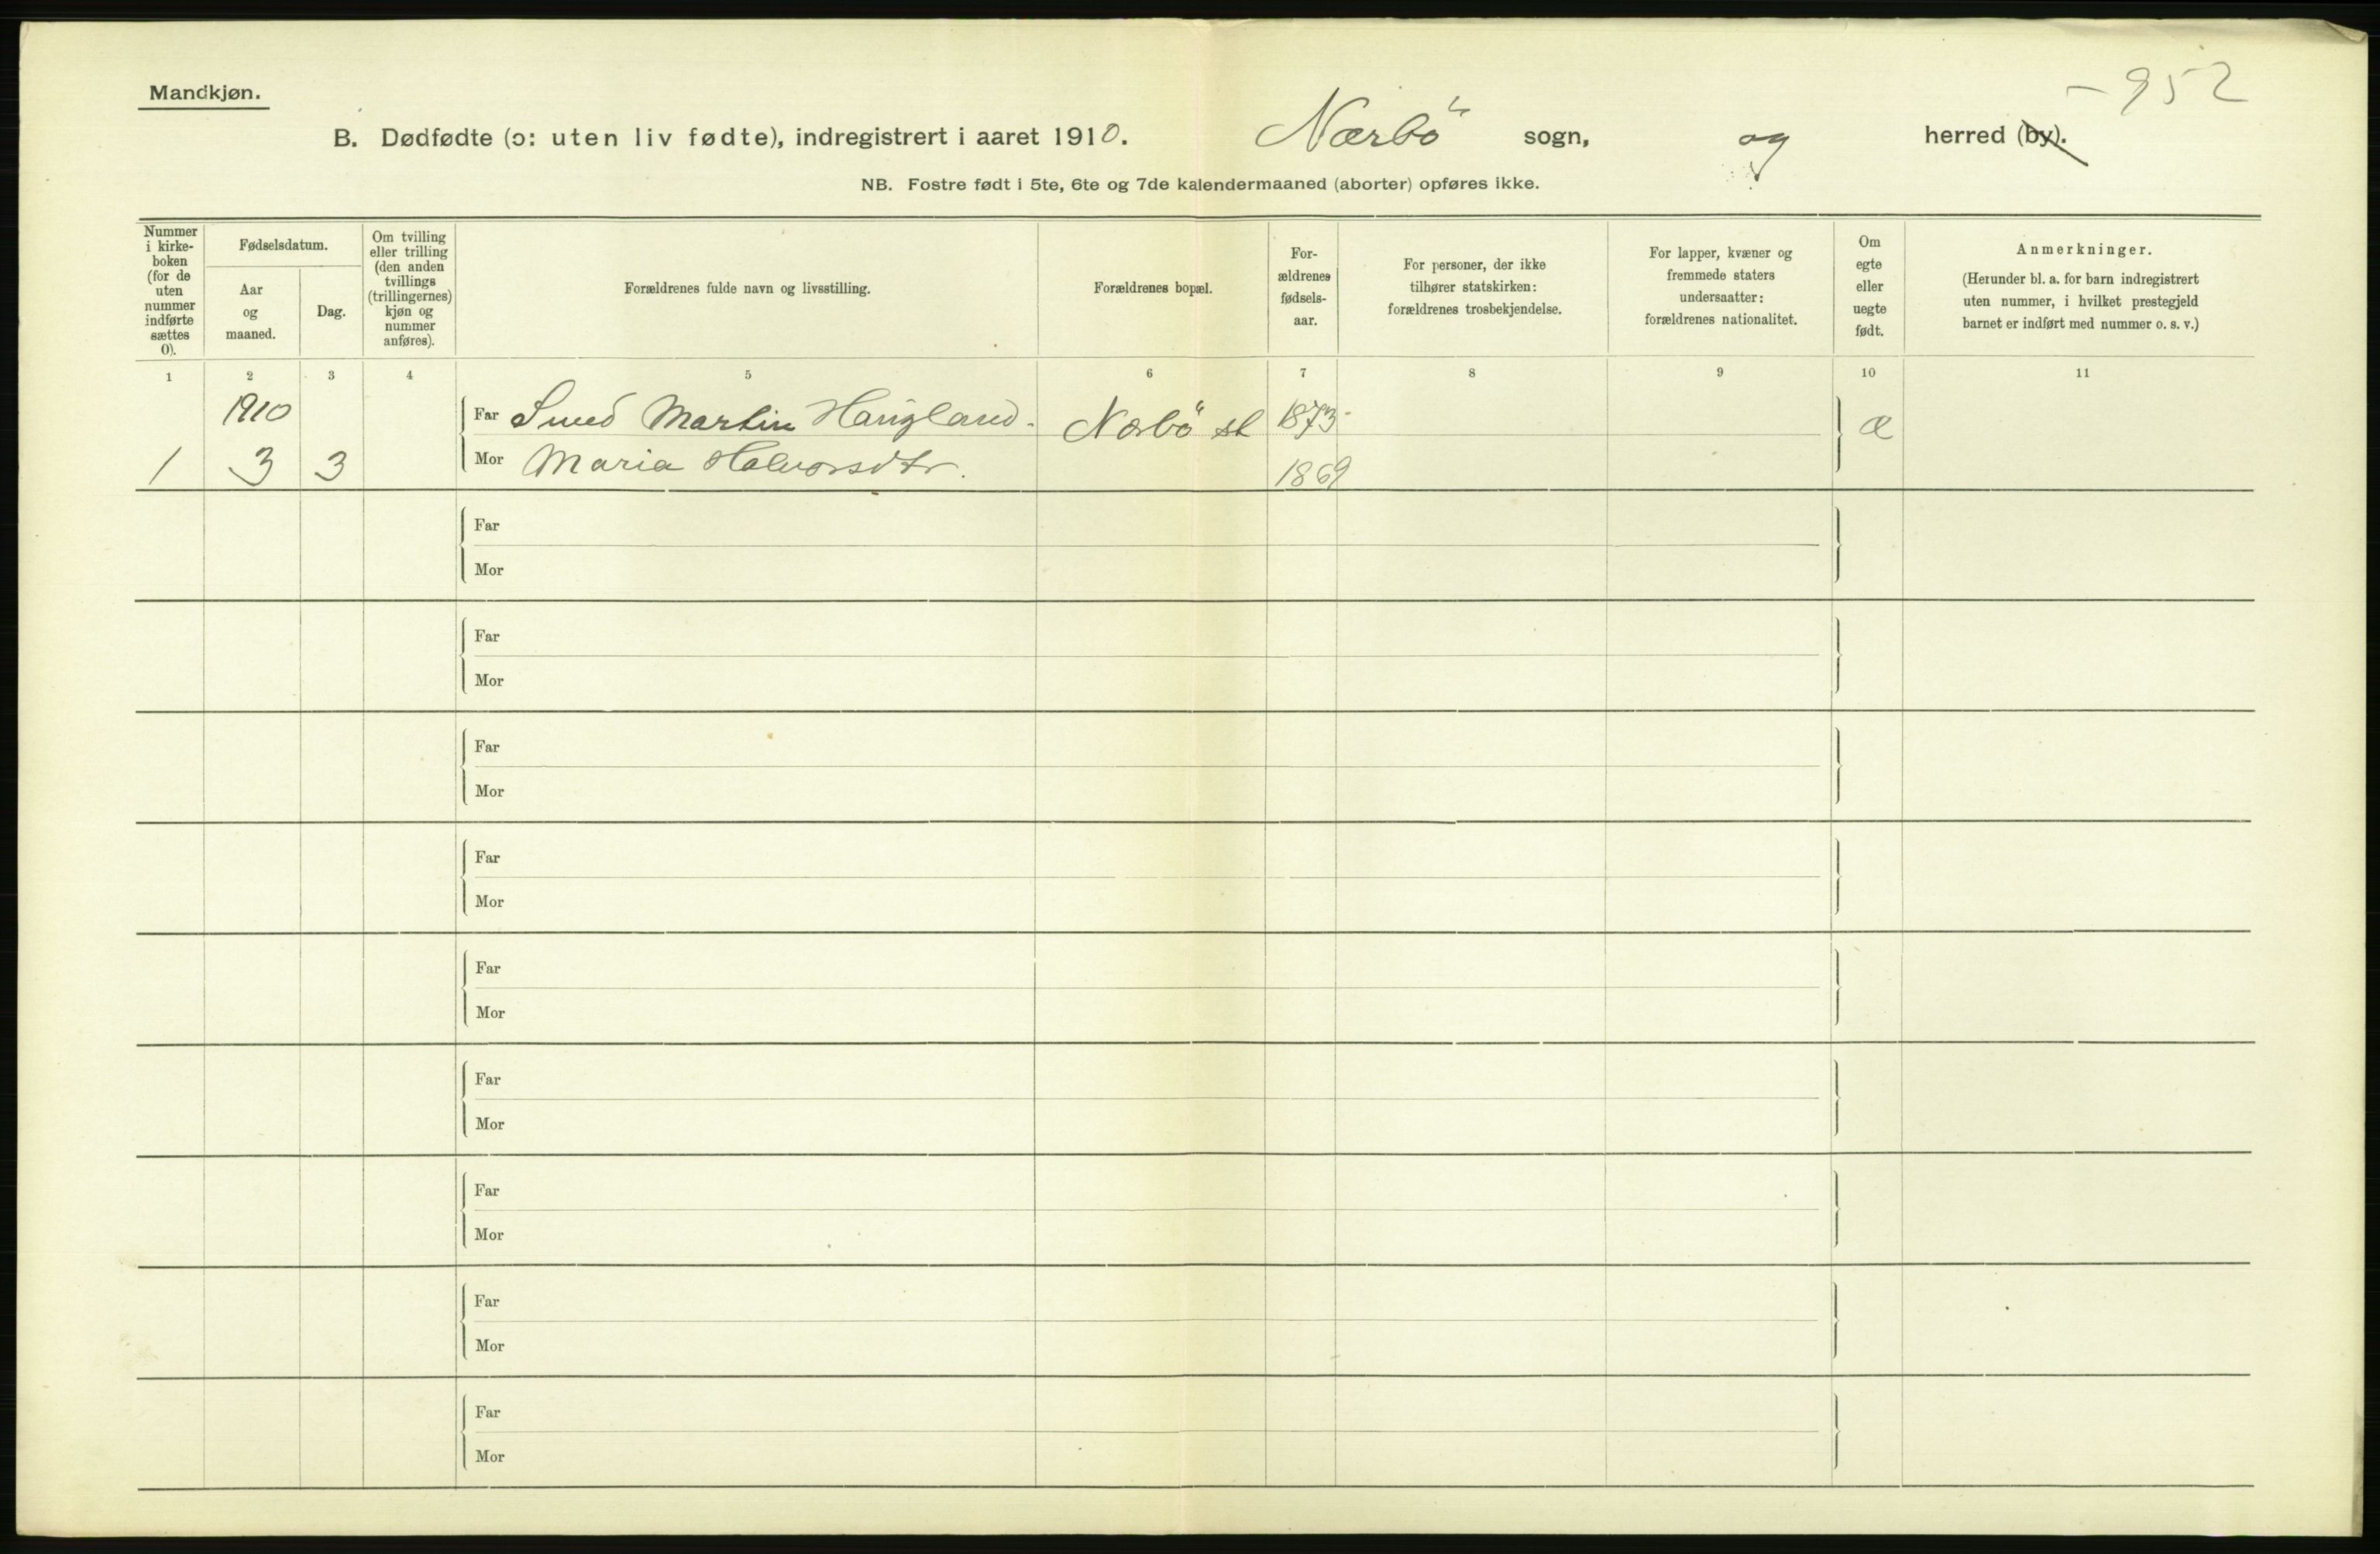 - 952
Mandkjøn.
B. Dødfødte (ɔ: uten liv fødte), indregistrert i aaret 1910. Nærbö sogn, og herred (by).
NB. Fostre født i 5te, 6te og 7de kalendermaaned (aborter) opføres ikke.
Nummer i kirke-boken (for de uten nummer indførte sættes 0).
Fødselsdatum.
Aar og maaned.
Dag.
Om tvilling eller trilling (den anden tvillings (trillingernes) kjøn og nummer anføres).
Forældrenes fulde navn og livsstilling.
Forældrenes bopæl.
For-ældrenes fødsels-aar.
For personer, der ikke tilhører statskirken: forældrenes trosbekjendelse.
For lapper, kvæner og fremmede staters undersaatter: forældrenes nationalitet.
Om egte eller uegte født.
Anmerkninger.
(Herunder bl. a. for barn indregistrert uten nummer, i hvilket prestegjeld barnet er indført med nummer o. s. v.)
1 2 3 4 5 6 7 8 9 10 11
1910 Far Smed Martin Haugland. Nærbö st 1873 æ
1 3 3 Mor Maria Halvorsdtr. 1869
Far
Mor
Far
Mor
Far
Mor
Far
Mor
Far
Mor
Far
Mor
Far
Mor
Far
Mor
Far
Mor